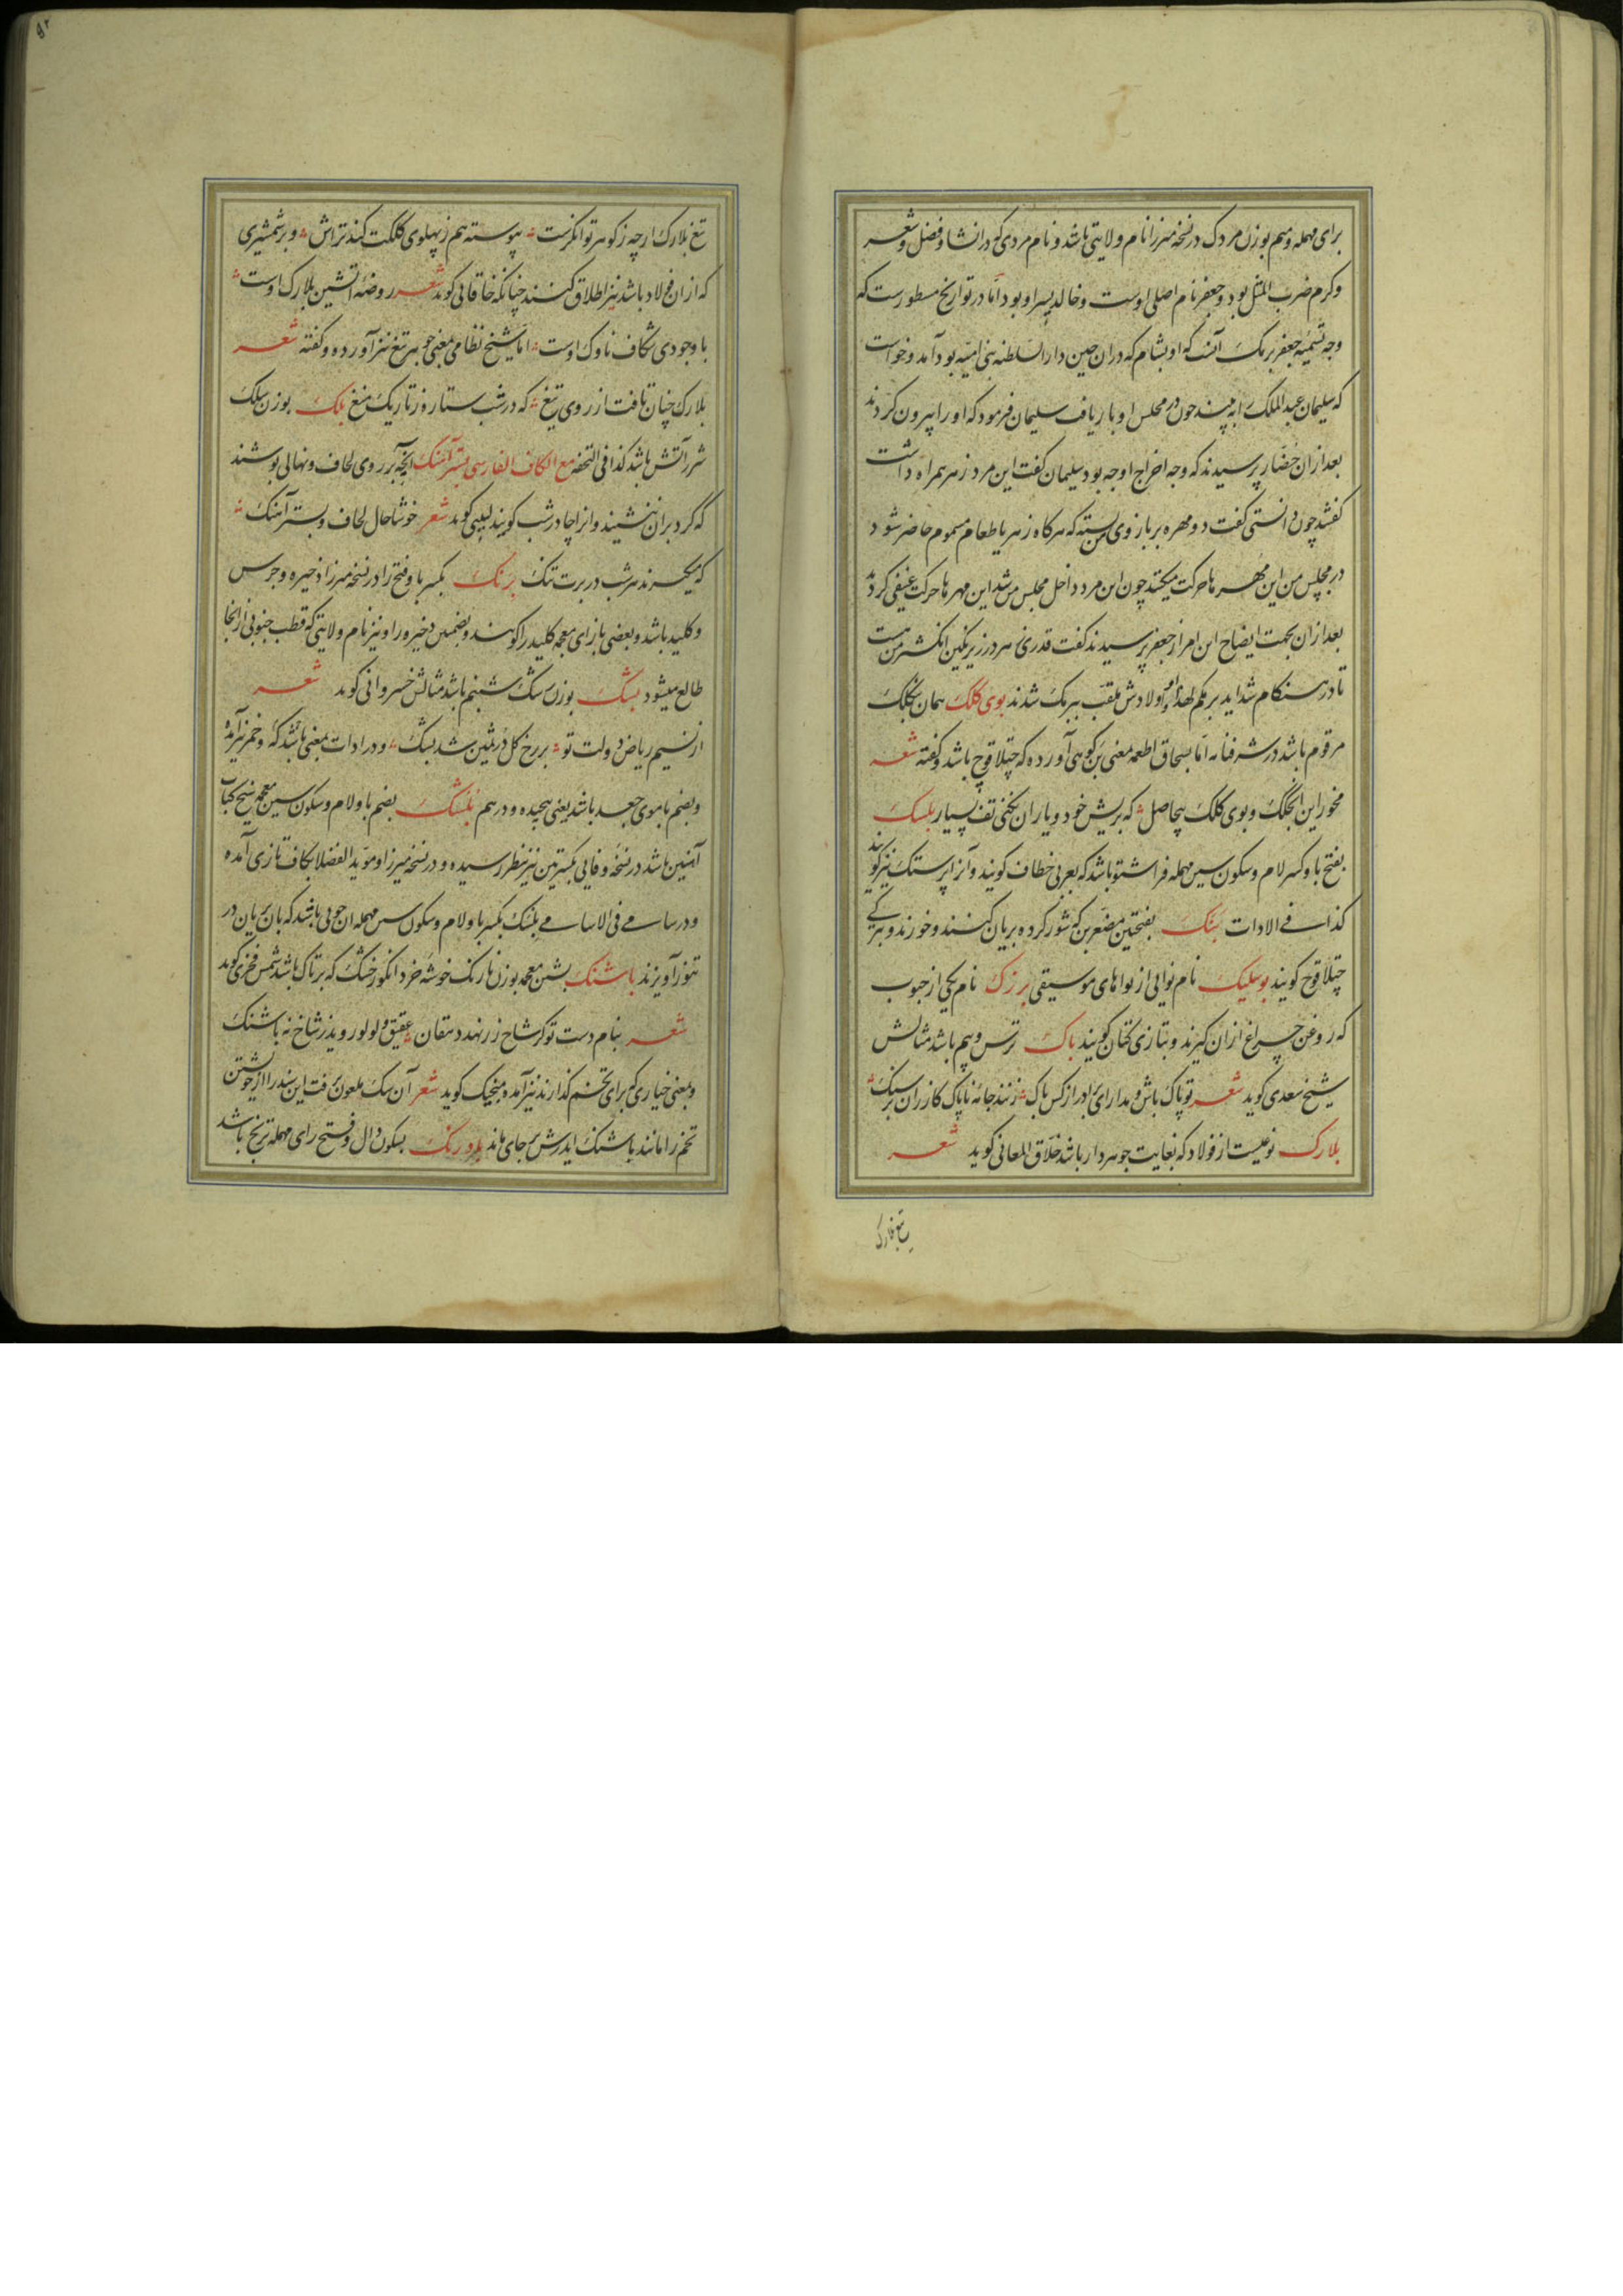 برای مهمله و میم بوزن مردک در نسخه میرزا نام ولایتی باشد و نام مردی که در انشا و فضل و شعر
و کرم ضرب المثل بود و جعفر نام اصلی اوست و خالد پسر او بود اما در تواریخ مسطورست که
وجه تسمیه جعفر برمک آنست که او بشام که دران حین دار السلطنه بنی امیه بود آمد و خواست
که سلیمان عبد الملک را به بیند چون در مجلس او بار یافت سلیمان فرمود که او را بیرون کردند
بعد ازان حضار پرسیدند که وجه اخراج او چه بود سلیمان گفت این مرد زهر همراه داشت
گفتند چون دانستی گفت دو مهره بر بازوی من بسته که هرکاه زهر یا طعام مسموم حاضر شود
در مجلس من این مهرها حرکت میکنند چون این مرد داخل مجلس من شد این مهرها حرکت عنیفی کردند
بعد ازان بجهت ایضاح این امر از جعفر پرسیدند گفت قدری زهر در زیر نگین انگشتر من هست
تا در هنگام شداید برمکم لهذا او و اولادش ملقب ببرمک شدند بوی کلک همان بکلک
مرقوم باشد در شرفنامه اما بسحاق اطعمه معنی بن کوهی آورده که چتلاقوچ باشد و گفته شعر
مخور این انجلک و بوی کلک بیحاصل که بریش خود و یاران نکنی تف بسیار بلسک
بفتح با و کسر لام و سکون سین مهمله فراشتو باشد که بعربی خطاف گویند و آنرا پرستک نیز گویند
کذا فی الادات بنک بفتحتین مصغر بن که شور کرده بریان کنند و خورند و بترکی
چتلاقوچ گویند بوسلیک نام نوایی از نواهای موسیقی بزرک نام یکی از حبوب
که روغن چراغ ازان گیرند و بتازی کتان گویند باک ترس و بیم باشد مثالش
شیخ سعدی گوید شعر تو پاک باش و مدار ای برادر از کس باک زنند جامه ناپاک گازران بر سنگ
بلارک نوعیست از فولاد که بغایت جوهردار باشد خلاق المعانی گوید شعر
تیغ بلارک
تیغ بلارک ارچه ز گوهر توانگرست پیوسته هم ز پهلوی کلکت کند تراش و بر شمشیری
که ازان فولاد باشد نیز اطلاق کنند چنانکه خاقانی گوید شعر روضه آتشین بلارک اوست
با وجودی شکاف ناوک اوست اما شیخ نظامی بمعنی جوهر تیغ نیز آورده و گفته شعر
بلارک چنان تافت از روی تیغ که در شب ستاره ز تاریک میغ بلک بوزن سلک
شرر آتش باشد کذا فی التحفه مع الکاف الفارسی بسترآهنک آنچه بر روی لحاف و نهالی پوشند
که گرد بران ننشیند و آنرا چادر شب گویند لبیبی گوید شعر خوشا حال لحاف و بسترآهنک
که میگیرند هر شب در برت تنگ برنک بکسر با و فتح را در نسخه میرزا ذخیره و جرس
و کلید باشد و بعضی بازای معجمه کلید را گویند و بضمین ذخیره و راو نیز نام ولایتی که قطب جنوبی از انجا
طالع میشود بشک بوزن سگ شبنم باشد مثالش خسروانی گوید شعر
از نسیم ریاض دولت تو بر رخ گل در ثمین شد بشک و در ادات بمعنی باشد که و خمر نیز آمده
و بضم با موی جعد باشد یعنی پیچیده و درهم بلشک بضم با و لام و سکون سین معجمه سیخ کباب
آهنین باشد در نسخه وفایی بکسرتین نیز بنظر رسیده و در نسخه میرزا و موید الفضلا بکاف تازی آمده
و در سامی فی الاسامی بلسک بکسر با و لام و سکون سین مهمله ان چوبی باشد که بان بریان در
تنور آویزند باشنک بشین معجمه بوزن نارنگ خوشه خرد انگور خشک که بر تاک باشد شمس فخری گوید
شعر بنام دست تو گر شاخ رز نهد دهقان عقیق و لولو روید ز شاخ نه باشنک
و بمعنی خیاری که برای تخم گذارند نیز آمده منجیک گوید شعر آن سگ ملعون برفت این سند را از خویشتن
تخم را مانند باشنک ایدرش بر جای ماند بادرنک بسکون دال و فتح رای مهمله ترنج باشد